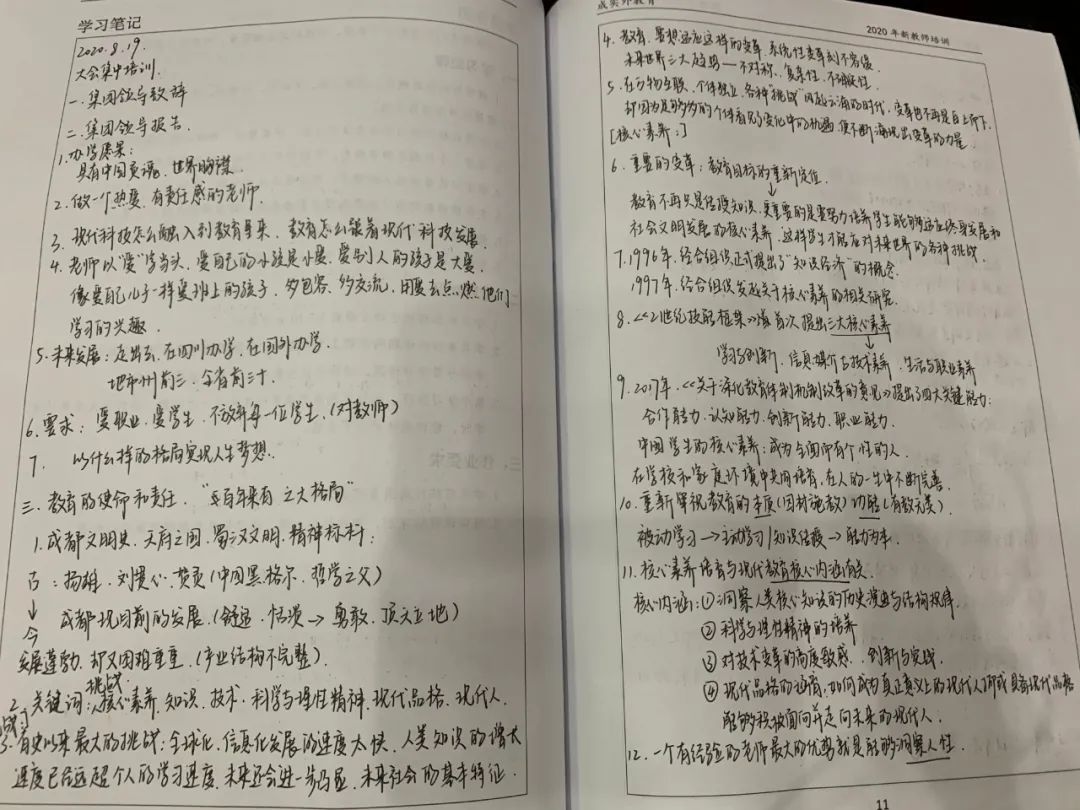 学习笔记
2020.8.19.
大会集中培训.
一.集团领导致辞
二.集团领导报告.
1.办学愿景:
具有中国灵魂、世界眼光.
2.做一个热爱、有责任感的老师.
3. 现代科技怎么融入到教育里来、教育怎么跟着现代科技发展.
4. 老师以“爱”字当头,爱自己的小孩是小爱,爱别人的孩子是大爱,
像爱自己儿子一样爱班上的孩子,多包容、多交流,用爱去点燃他们
学习的兴趣.
5.未来发展:走出去,在四川办学,在国外办学.
地市州前三,全省前三十.
6.要求:爱职业,爱学生,不放弃每一位学生.(对教师)
7. 以什么样的格局实现人生梦想.
三.教育的使命和责任.“百年未有之大格局”
1.成都文明史,天府之国.蜀汉文明.精神标杆:
古:扬雄.刘(中国黑格尔,哲学之父)
↓
今 成都现目前的发展.(舒适、→勇敢、顶天立地)
发展蓬勃,却又困难重重.(产业结构不完整).
挑战
2.关键词:核心素养、知识、技术、科学与理性精神、现代品格、现代人.
3.有史以来最大的挑战:全球化、信息化发展的速度太快,人类知识的增长
速度已远远超个人的学习速度,未来还会进一步凸显,未来社会的基本特征.
成实外教育
2020 年新教师培训
4.教育,要想适应这样的变革,系统性变革刻不容缓.
未来世界三大趋势—不对称、复杂性、不确定性.
5.在万物互联、个体独立、各种“挑战”风起云涌的时代,变革也不再是自上而下,
却因为足够多的个体看见了变化中的机遇,使不断涌现出变革的力量.
[核心素养:]
6.重要的变革:教育目标的重新定位.
↓
教育不再只是传授知识,更重要的是要努力培养学生能够适应终身发展和
社会文明发展的核心素养,这样学生才能应对未来世界的各种挑战.
7.1996年,经合组织正式提出了“知识经济”的概念.
1997年,经合组织发起关于核心素养的相关研究.
8.《21世纪技能框架》首次提出三大核心素养
↓
学习与创新、信息媒介与技术素养、生活与职业素养
9.2017年,《关于深化教育体制机制改革的意见》提出了四大关键能力:
合作能力、认知能力、创新能力、职业能力.
中国学生的核心素养:成为全面而有个性的人.
在学校和家庭环境中共同培育,在人的一生中不断完善.
10.重新审视教育的本质(因材施教)功能(有教无类).
被动学习→主动学习/知识传授→能力为本.
11.核心素养培育与现代教育核心内涵有关.
核心内涵:①洞察人类核心知识的历史演变与结构规律.
②科学与理性精神的培养
③对技术变革的高度敏感、创新与实践.
④现代品格的培育,如何成为真正意义上的现代人,形成具有现代品格
能够积极面向并走向未来的现代人.
12.一个有经验的老师最大的优势就是能够洞察人性.
11